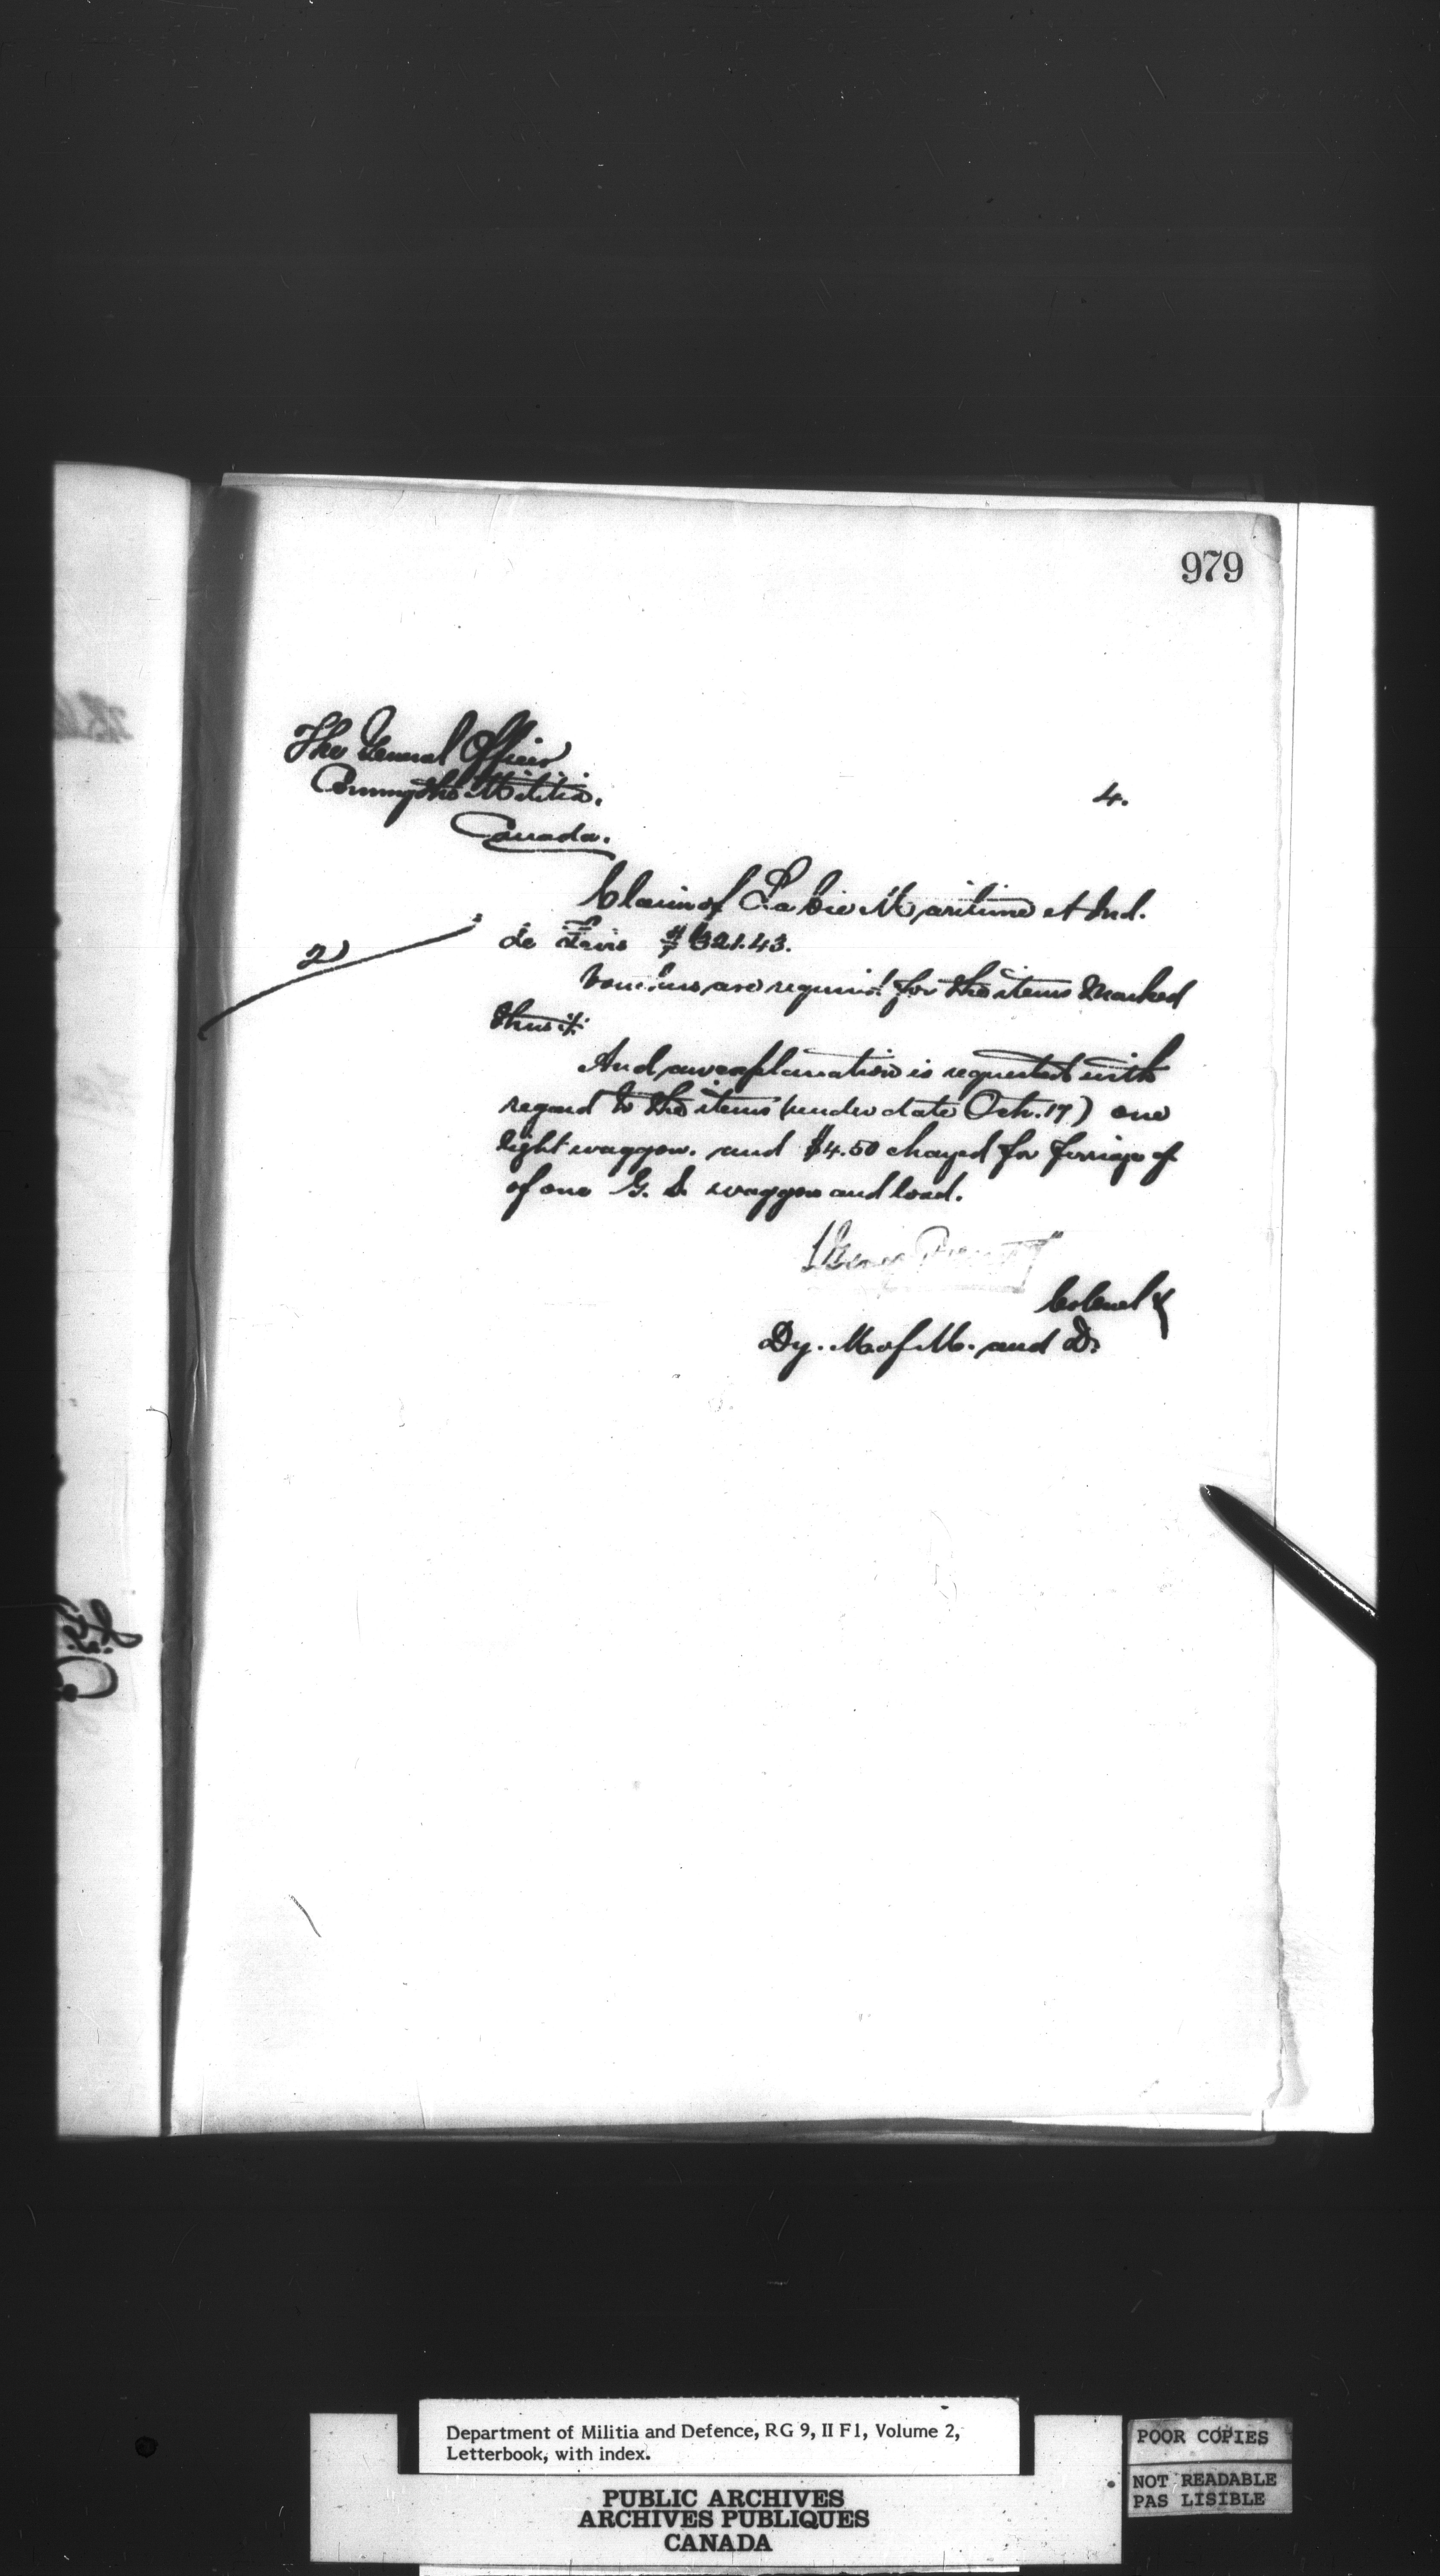 979
The General Officer
Commg the Militia.
4.
Canada.
Claim of La Cie Maritime et Ind.
de Levis $321.43.
2
Vouchers are required for the items marked
thus #
And an explanation is requested with
regard to the items (under date Oct. 17) one
light waggon. and $4.50 charged for ferriage of
of one G. S. waggon and load.
Colonel &
Dy. M. of M. and D.
Department of Militia and Defence, RG 9, II F1, Volume 2,
Letterbook, with index.
PUBLIC ARCHIVES
ARCHIVES PUBLIQUES
CANADA
POOR COPIES
NOT READABLE
PAS LISIBLE